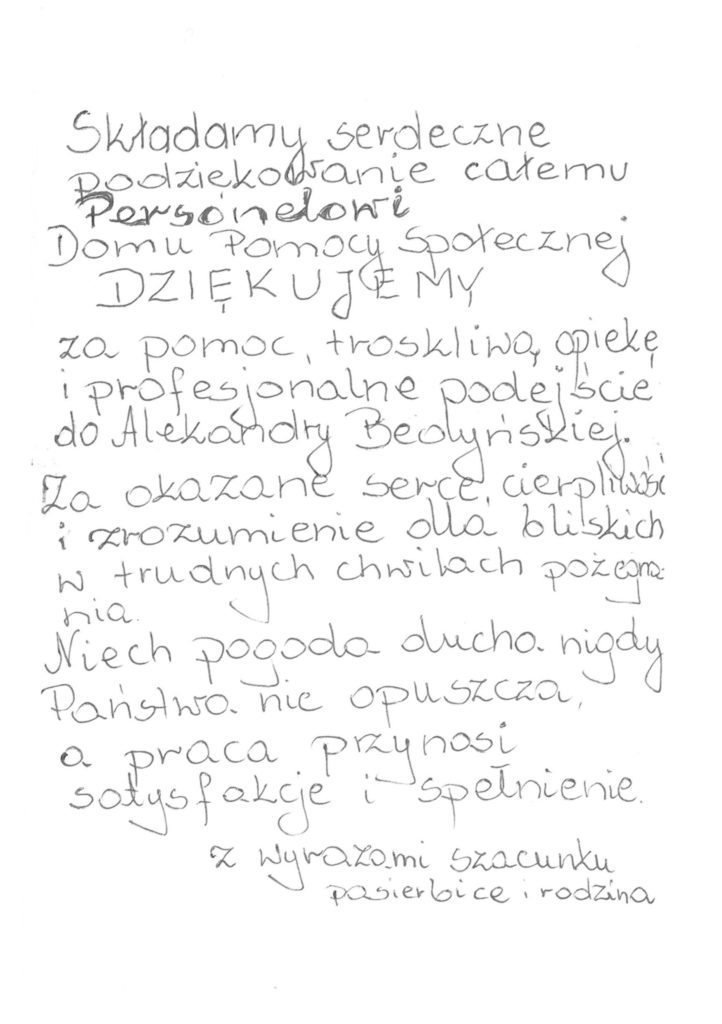 Składamy serdeczne
podziękowanie całemu
Personelowi
Domu Pomocy Społecznej
DZIĘKUJEMY
za pomoc, troskliwą opiekę
i profesjonalne podejście
do Alekandry Bedyńskiej.
Za okazane serce, cierpliwość
i zrozumienie dla bliskich
w trudnych chwilach pożegna-
nia.
Niech pogoda ducha nigdy
Państwa nie opuszcza,
a praca przynosi
satysfakcje i spełnienie.
z wyrazami szacunku
pasierbice i rodzina